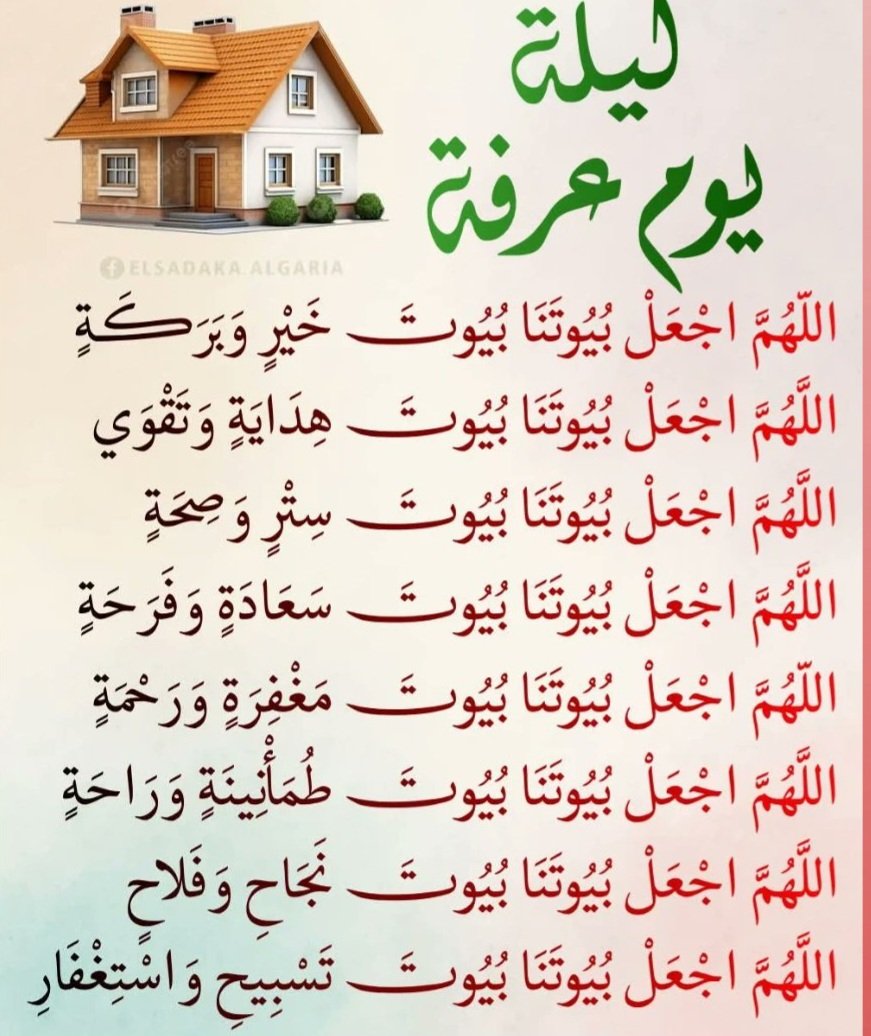 ليلة
يوم عرفة
ELSADAKA.ALGARIA
اللّهُمَّ اجْعَلْ بُيُوتَنَا بُيُوتَ خَيْرٍ وَبَرَكَةٍ
اللَّهُمَّ اجْعَلْ بُيُوتَنَا بُيُوتَ هِدَايَةٍ وَتَقْوَي
اللَّهُمَّ اجْعَلْ بُيُوتَنَا بُيُوتَ سِتْرٍ وَصِحَةٍ
اللَّهُمَّ اجْعَلْ بُيُوتَنَا بُيُوتَ سَعَادَةٍ وَفَرَحَةٍ
اللّهُمَّ اجْعَلْ بُيُوتَنَا بُيُوتَ مَغْفِرَةٍ وَرَحْمَةٍ
اللَّهُمَّ اجْعَلْ بُيُوتَنَا بُيُوتَ طُمَأْنِينَةٍ وَرَاحَةٍ
اللَّهُمَّ اجْعَلْ بُيُوتَنَا بُيُوتَ نَجَاحِ وَفَلاحٍ
اللَّهُمَّ اجْعَلْ بُيُوتَنَا بُيُوتَ تَسْبِيحِ وَاسْتِغْفَارِ